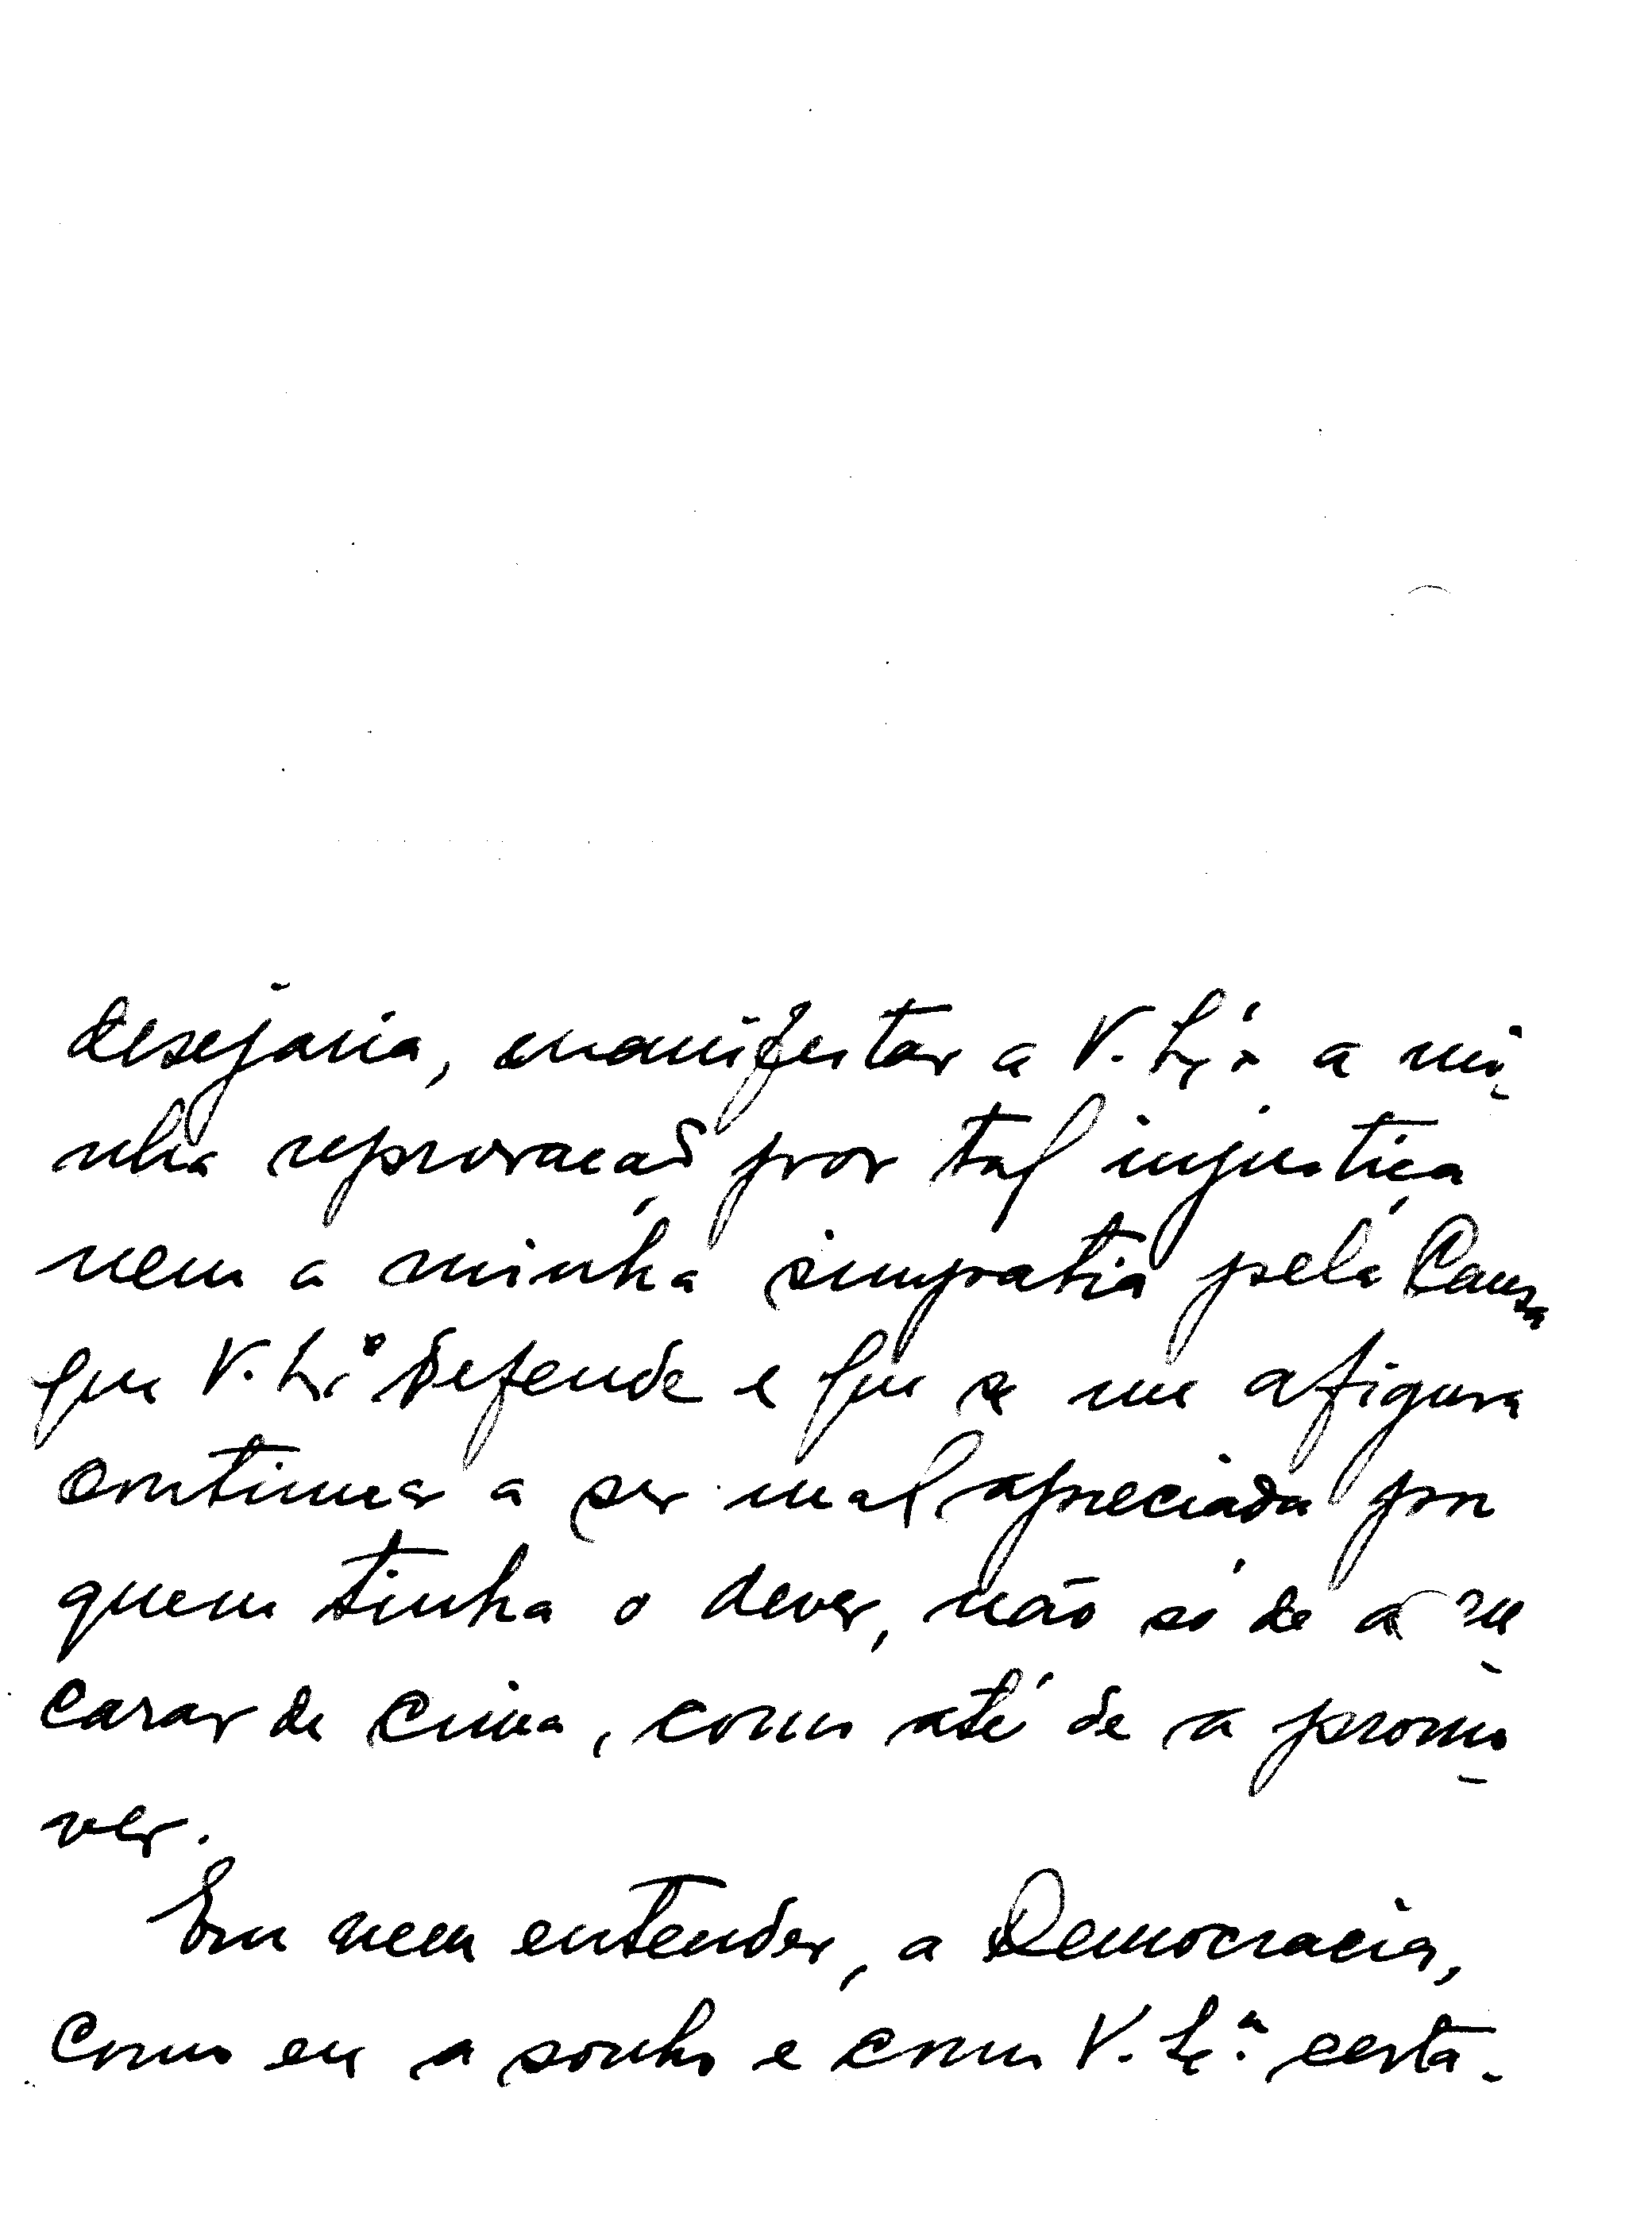 desejaria, manifestar a V. Ex.ª a mi-
nha reprovação por tal injustiça
nem a minha simpatia pela Causa
que V. Ex.ª defende e que se me afigura
continuar a ser mal apreciada por
quem tinha o dever, não só de a
carar de cima, como até de a promo-
ver.
Em meu entender, a Democracia,
como eu a sonho e como V. Ex.ª certa-